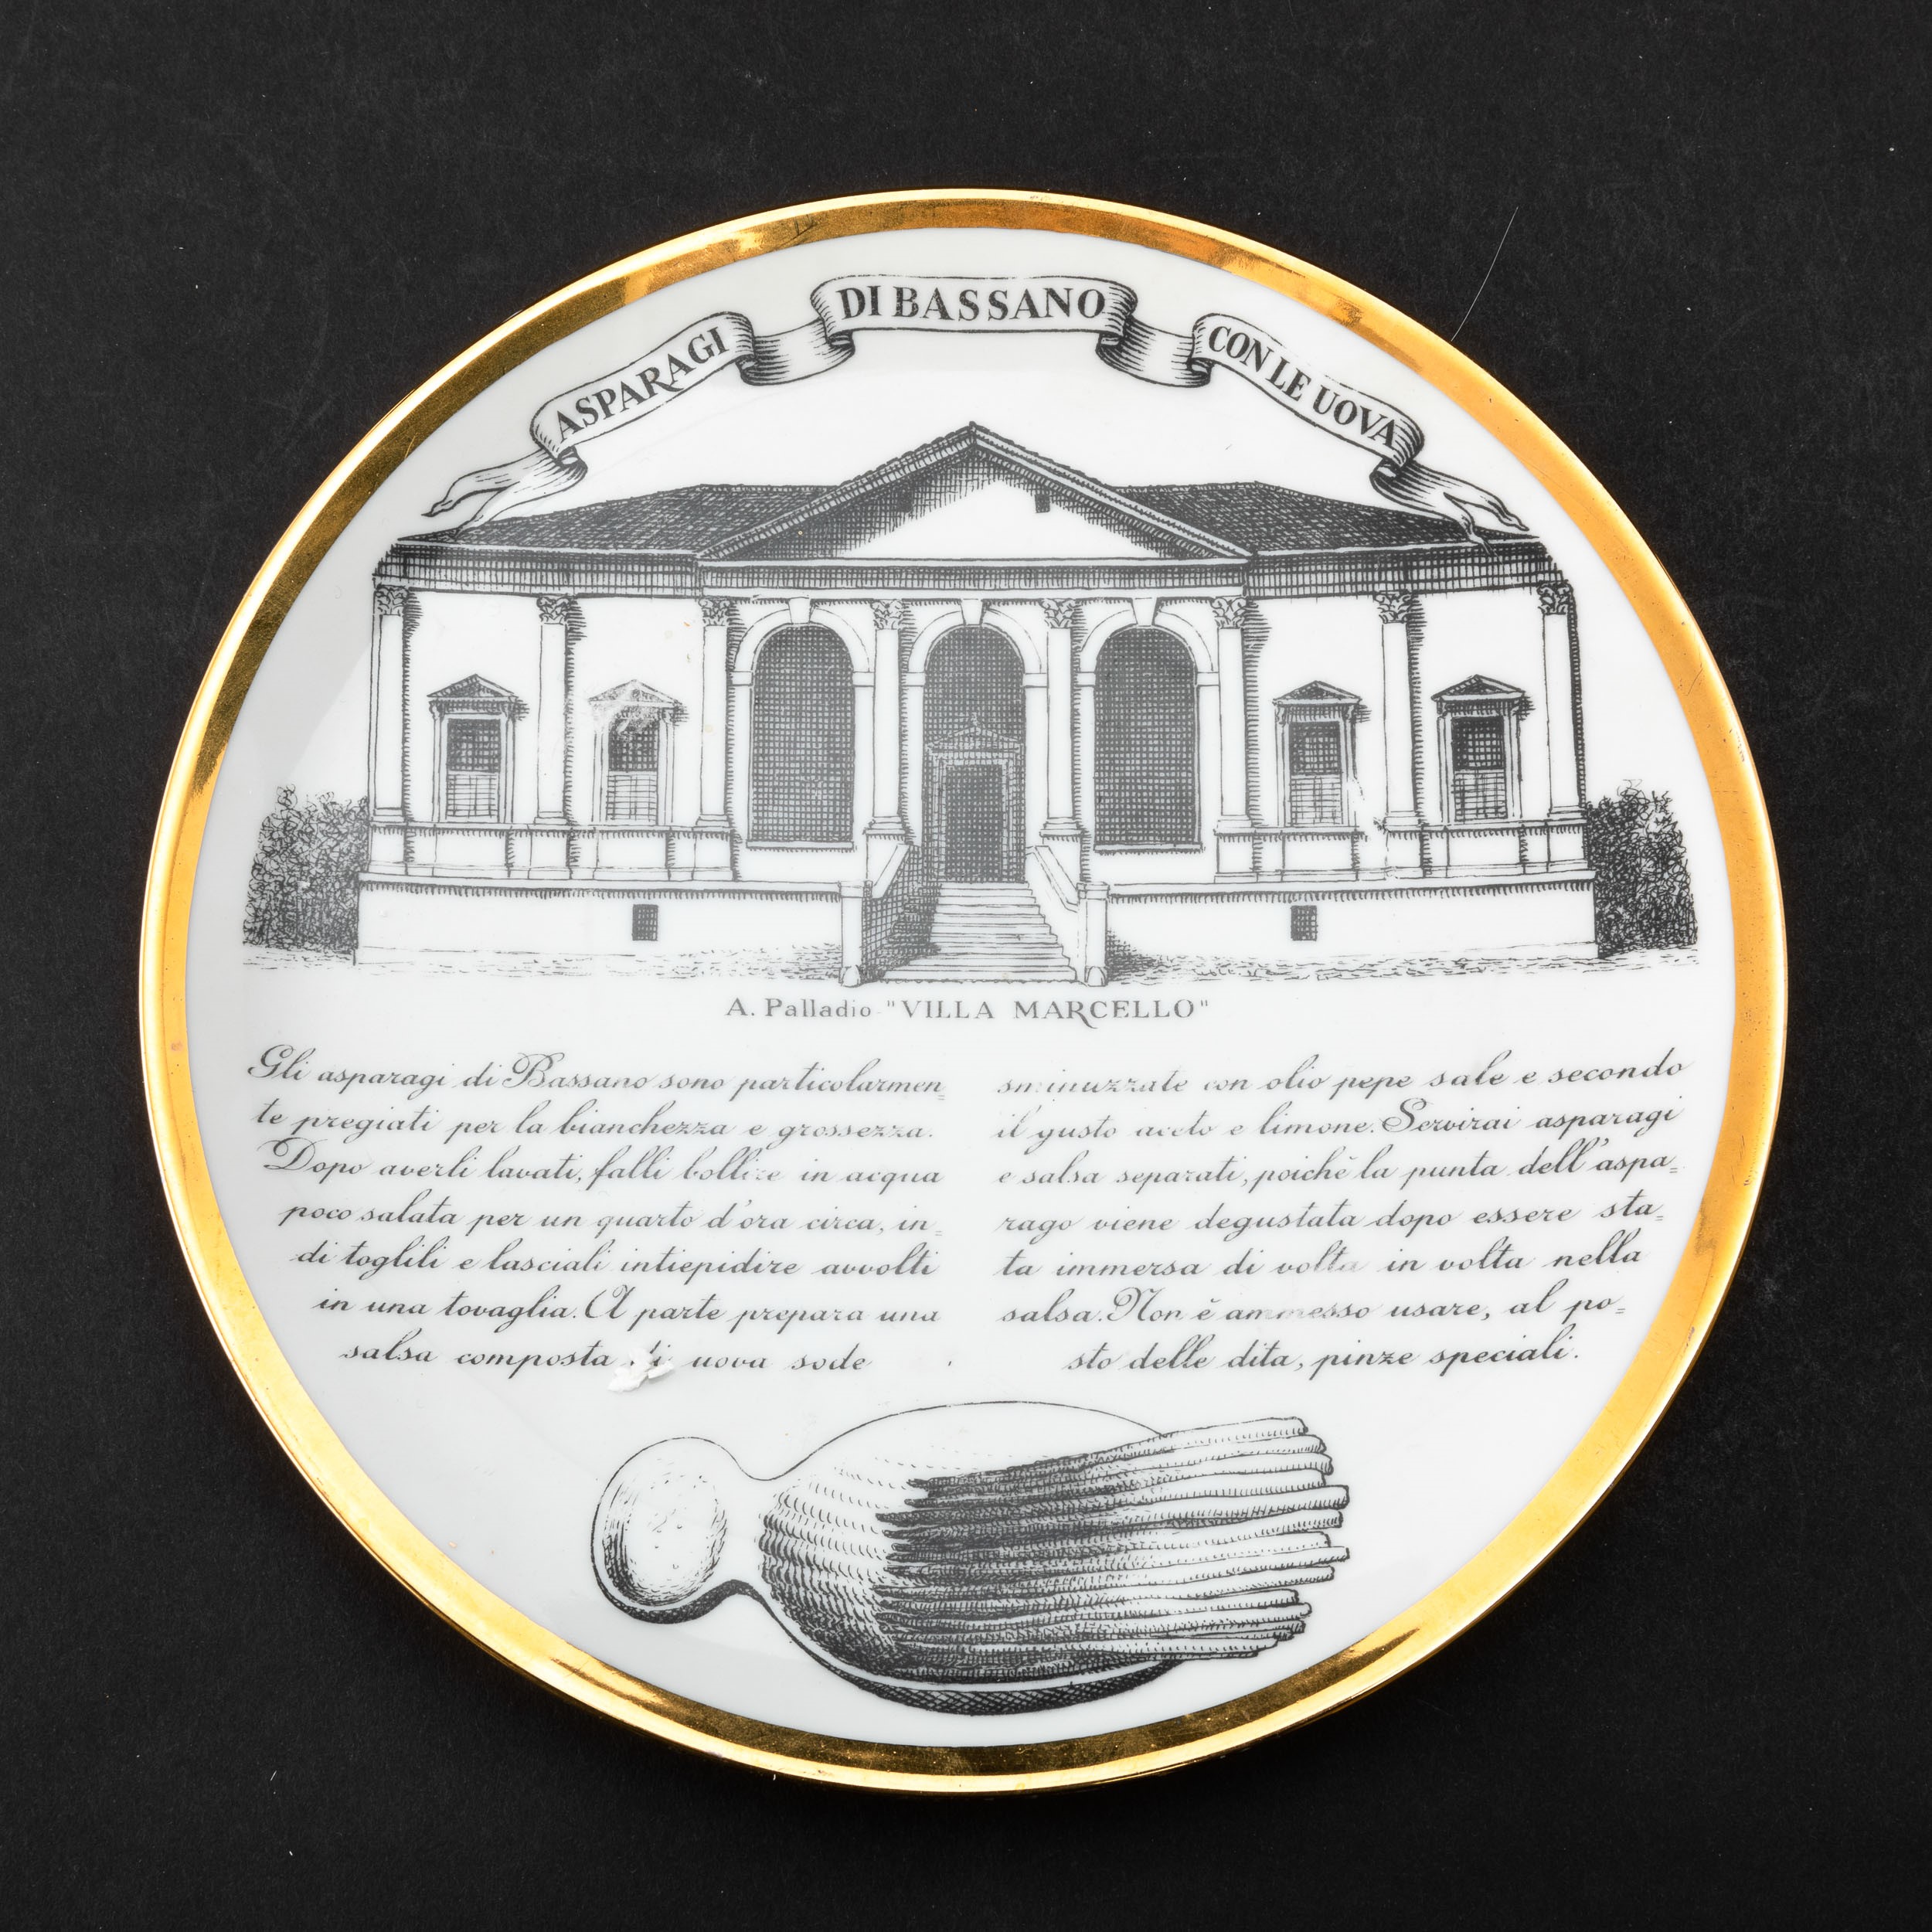 ASPARAGI DI BASSANO CON LE UOVA
A. Palladio "VILLA MARCELLO"
Gli asparagi di Bassano sono particolarmen=
te pregiati per la bianchezza e grossezza.
Dopo averli lavati, falli bollire in acqua
poco salata per un quarto d'ora circa, in=
di toglili e lasciali intiepidire avvolti
in una tovaglia. A parte prepara una
salsa composta di uova sode
sminuzzate con olio pepe sale e secondo
il gusto aceto e limone. Servirai asparagi
e salsa separati, poichè la punta dell'aspa=
rago viene degustata dopo essere sta=
ta immersa di volta in volta nella
salsa. Non è ammesso usare, al po=
sto delle dita, pinze speciali.